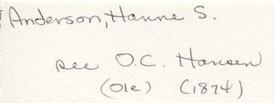 Anderson, Hanne S.
see O.C. Hansen
(Ole) (1874)